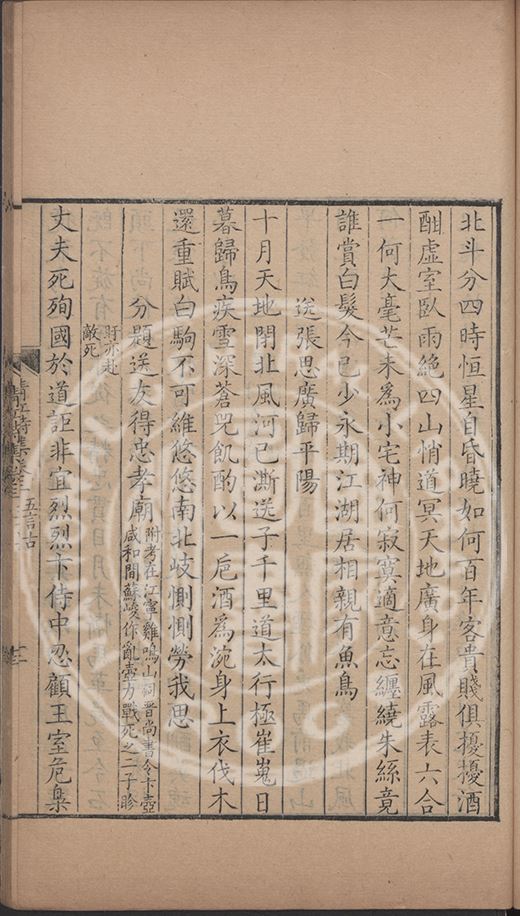 北斗分四時恒星自昏曉如何百年客貴賤俱擾擾酒
酣虛室臥雨絕四山悄道冥天地廣身在風露表六合
一何大毫芒未為小宅神何寂寞適意忘纏繞朱絲竟
誰賞白髮今已少永期江湖居相親有魚鳥
送張思廣歸平陽
十月天地閉北風河已澌送子千里道太行極崔嵬日
暮歸鳥疾雪深蒼兕飢酌以一巵酒為浣身上衣伐木
還重賦白駒不可維悠悠南北岐惻惻勞我思
分題送友得忠孝廟
附考在江寧雞鳴山祠晋尚書令卞壼
咸和間蘇峻作亂壼力戰死之二子眕
盱亦赴
敵死
丈夫死殉國於道詎非宜烈烈卞侍中忍顧王室危梟
五言古